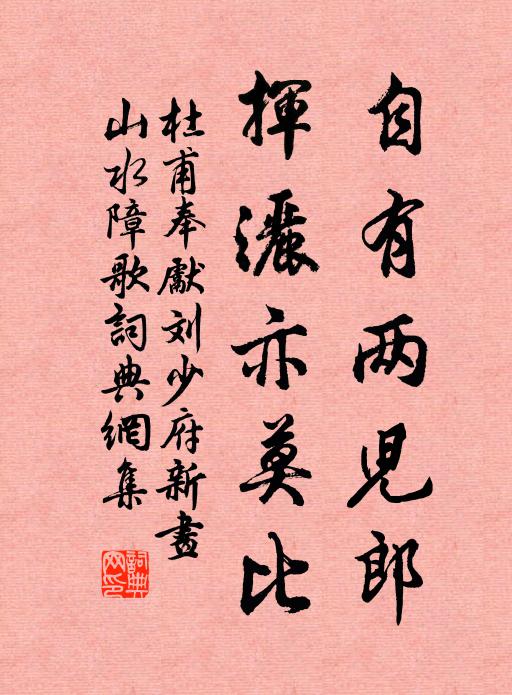 自有两兒郎
揮灑亦莫比
杜甫奉獻刘少府新畫
山水障歌詞典網集
詞典网印